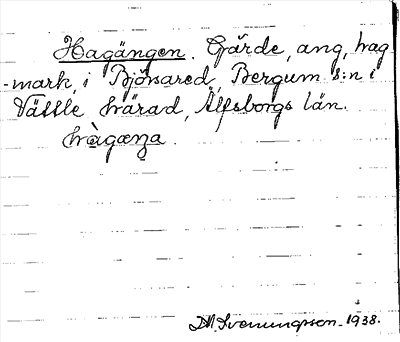 Hagängen. Gärde, äng, hag
-mark, i Björsared, Bergum s:n i
Vättle härad, Älfsborgs län.
hàgæŋa.
D.N. Svenungsson. 1938.